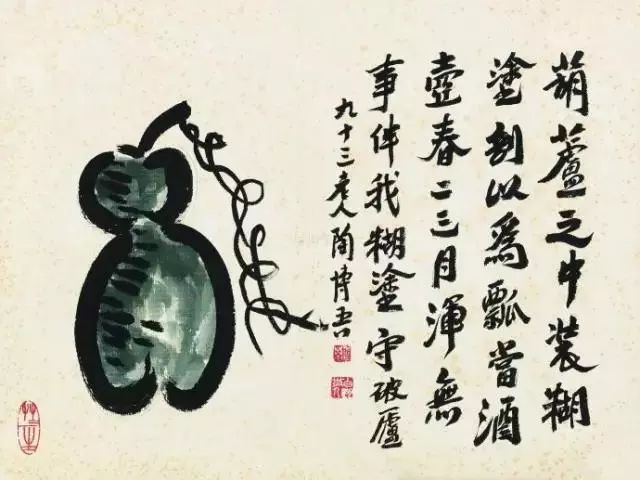 葫蘆之中裝糊
塗剖以爲瓢當酒
壺春二三月渾無
事伴我糊塗守破廬
九十三老人陶博吾